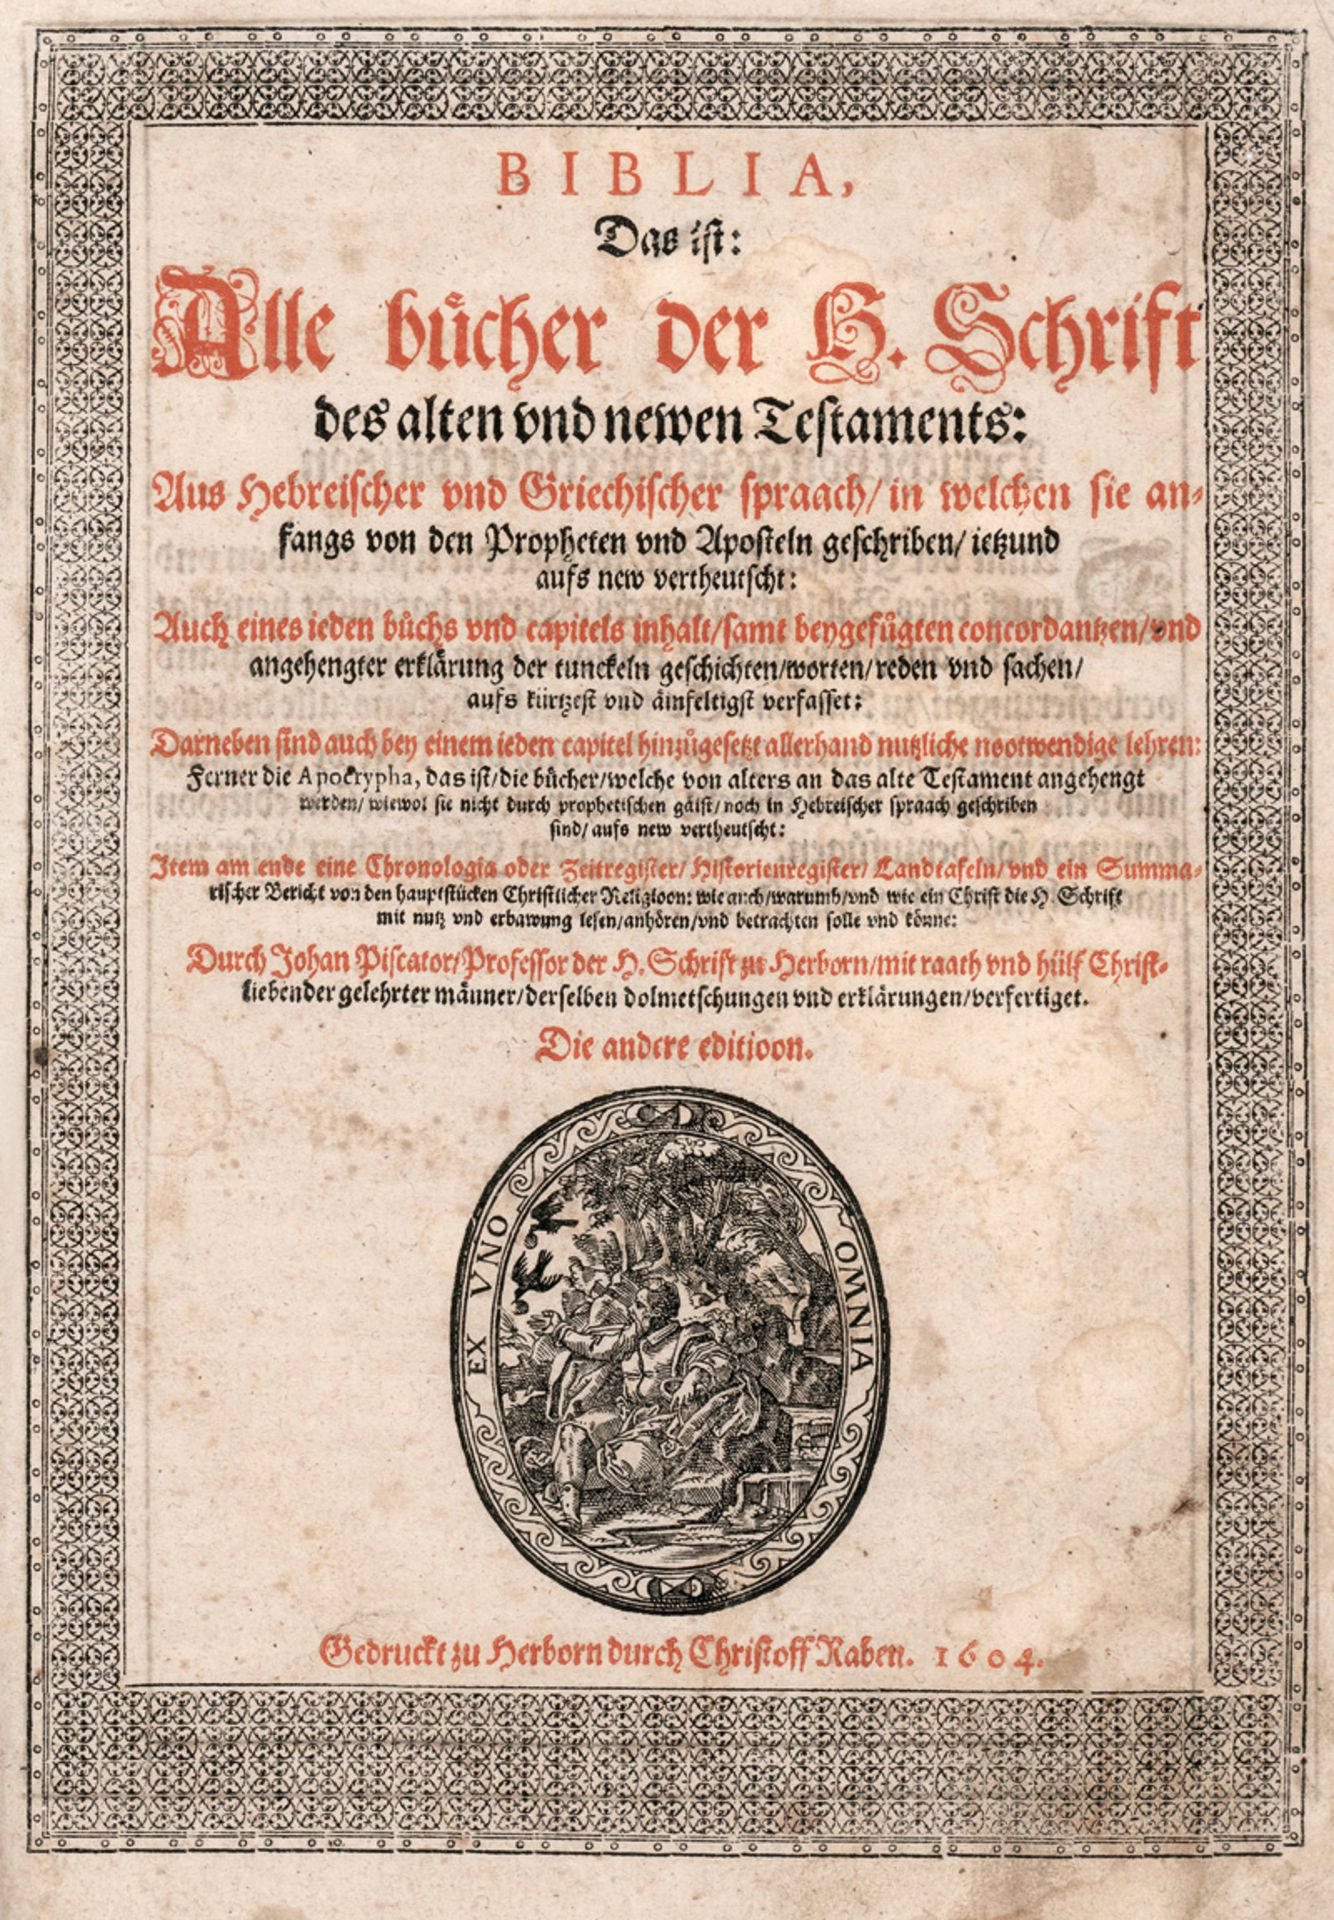 BIBLIA,
Das ist:
Alle bücher der H. Schrift
des alten vnd newen Testaments:
Aus Hebreischer vnd Griechischer spraach/ in welchen sie an-
fangs von den Propheten vnd Aposteln geschriben/ ietzund
aufs new vertheutscht:
Auch eines ieden bůchs vnd capitels inhalt/ samt beygefůgten concordantzen/ vnd
angehengter erklärung der tunckeln geschichten/ worten/ reden vnd sachen/
aufs kürtzest vnd äinfeltigst verfasset:
Darneben sind auch bey einem ieden capitel hinzůgesetzt allerhand nutzliche nootwendige lehren:
Ferner die Apocrypha, das ist/ die bücher/ welche von alters an das alte Testament angehengt
werden/ wiewol sie nicht durch prophetischen gäist/ noch in Hebreischer spraach geschriben
sind/ aufs new vertheutscht:
Item am ende eine Chronologia oder Zeitregister/ Historienregister/ Landtafeln/ vnd ein Summa-
rischer Bericht von den hauptstücken Christlicher Religioon: wie auch/ warumb/ vnd wie ein Christ die H. Schrift
mit nutz vnd erbawung lesen/ anhören/ vnd betrachten solle vnd könne:
Durch Johan Piscator/ Professor der H. Schrift zu Herborn/ mit raath vnd hülf Christ-
liebender gelehrter männer/ derselben dolmetschungen vnd erklärungen/ verfertiget.
Die andere editioon.
EX VNO OMNIA
Gedruckt zu Herborn durch Christoff Raben. 1604.